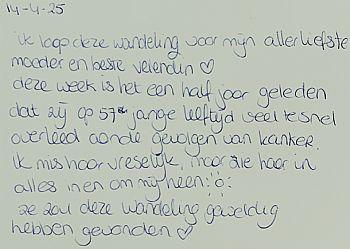 14-4-25
ik loop deze wandeling voor mijn allerliefste
moeder en beste vriendin ♡
deze week is het een half jaar geleden
dat zij op 57e jange leeftijd veel te snel
overleed aan de gevolgen van kanker.
ik mis haar vreselijk, maar zie haar in
alles in en om mij heen
ze zou deze wandeling geweldig
hebben gevonden ♡